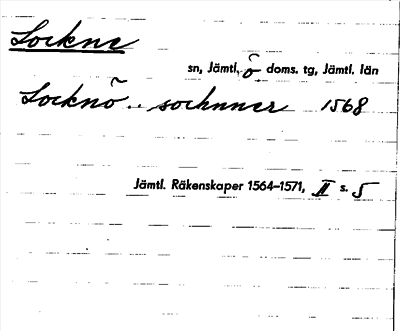 Lockne
sn, Jämtl. ö doms. tg, Jämtl. län
Locknö .. sochnner 1568
Jämtl. Räkenskaper 1564-1571, II s. 5